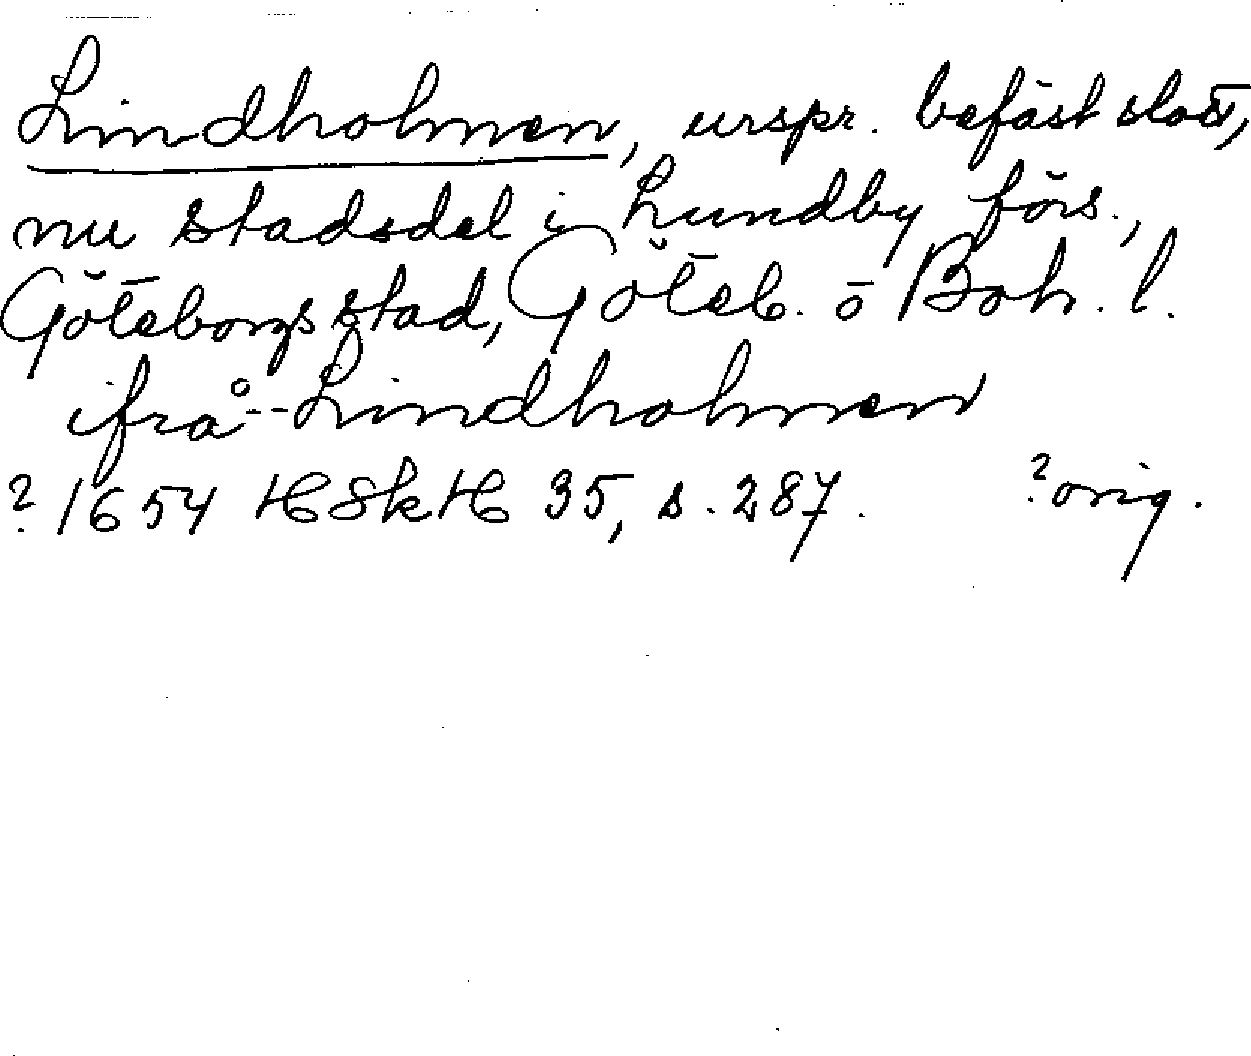 Lindholmen, urspr. befäst slott,
nu stadsdel i Lundby förs.,
Göteborgs stad, Göteb. o Boh. l.
ifrå -- Lindholmen
? 1654 HSkH 35, s. 287. ? orig.